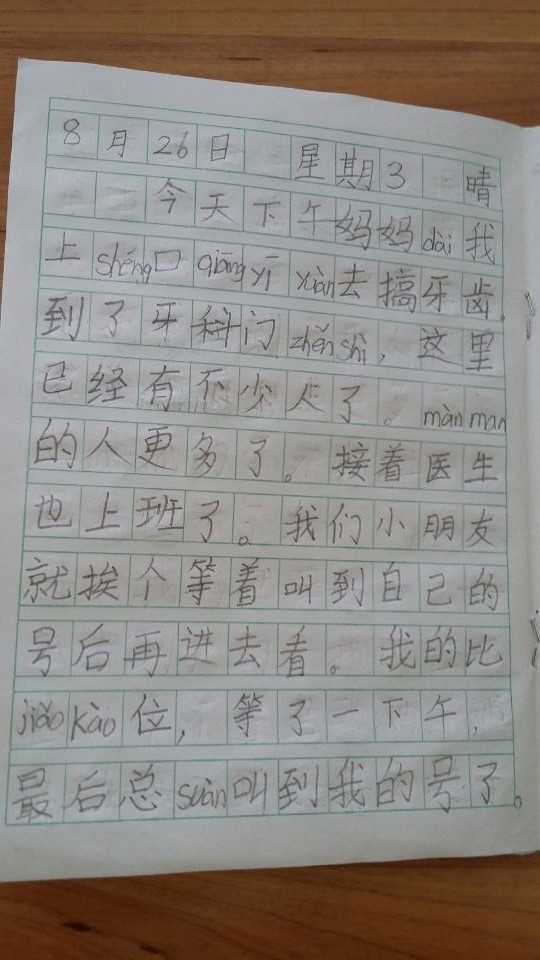 8月26日 星期3 晴
今天下午妈妈dài我
上shéng口qiāng yī yuàn去搞牙齿。
到了牙科门zhěn shì，这里
已经有不少人了。màn man
的人更多了。接着医生
也上班了。我们小朋友
就挨个等着叫到自己的
号后再进去看。我的比
jiǎo kào位，等了一下午，
最后总suàn叫到我的号了。